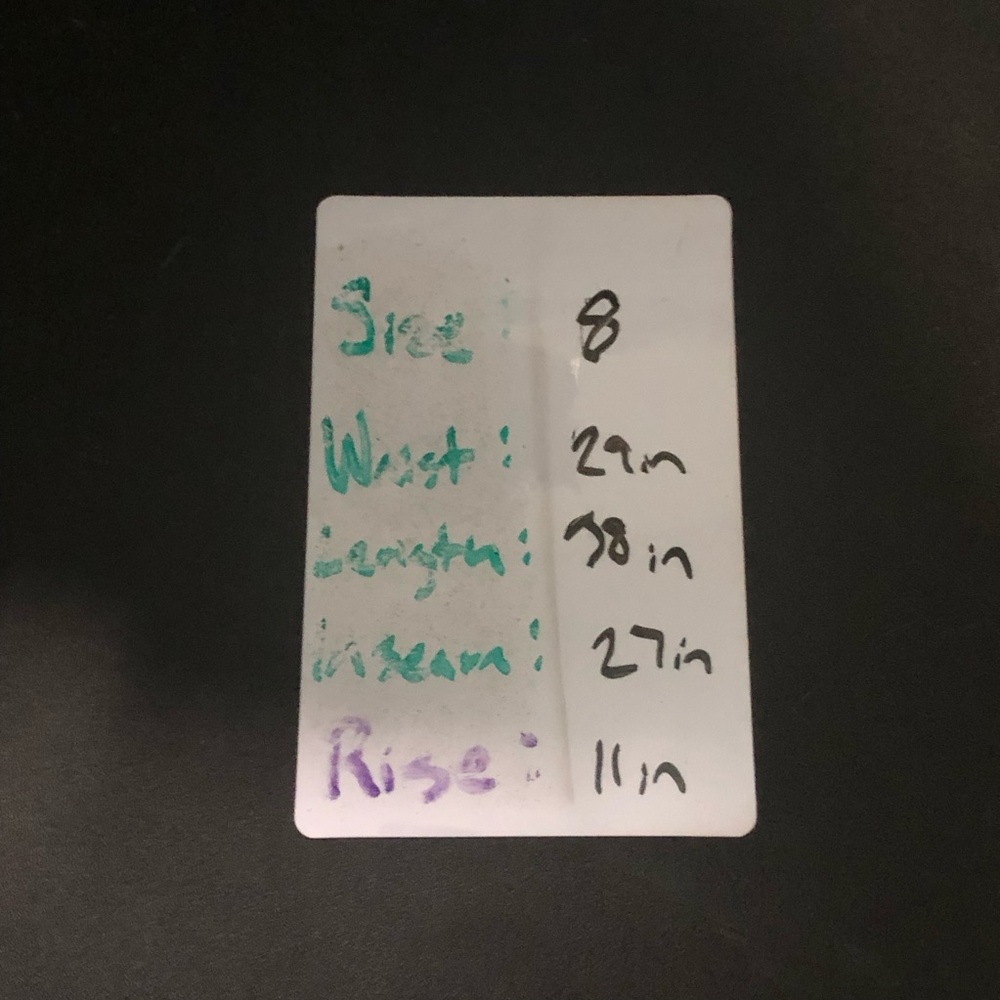 Size: 8
Waist: 29in
Length: 38in
Inseam: 27in
Rise: 11in